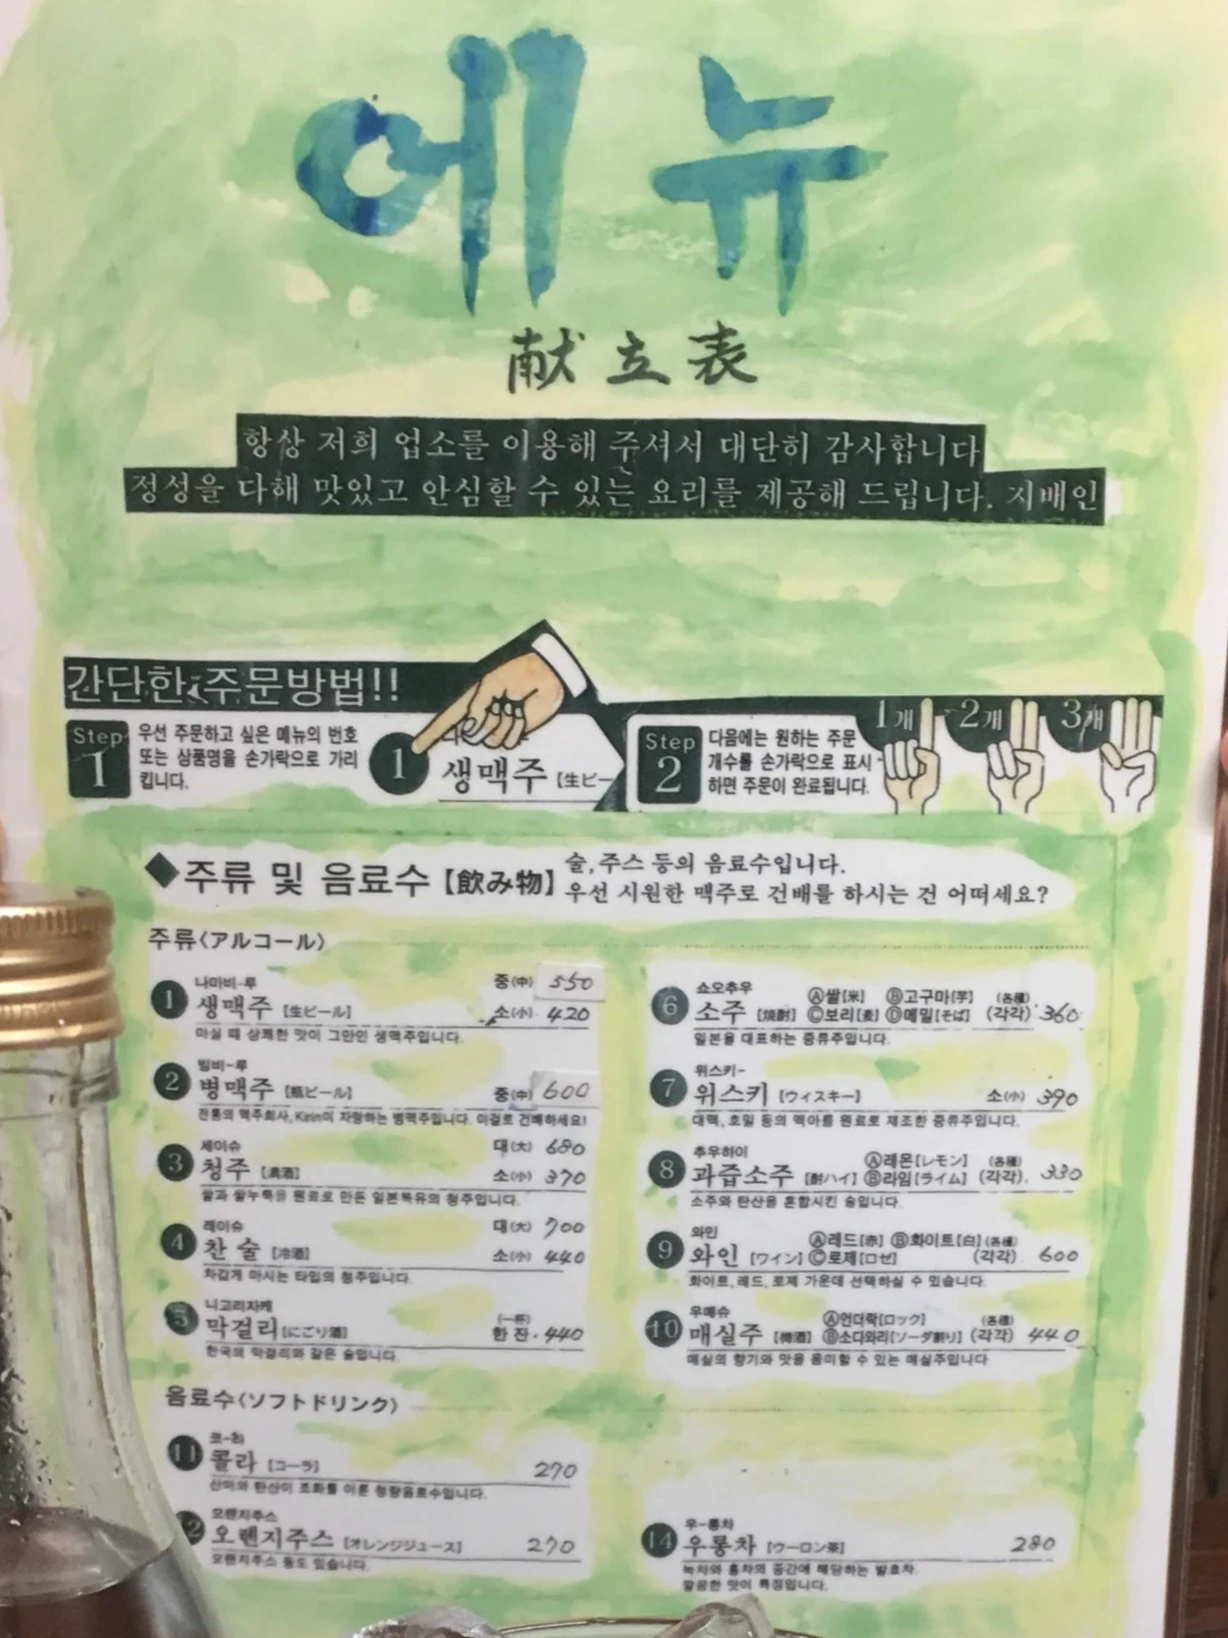 에뉴
献立表
항상 저희 업소를 이용해 주셔서 대단히 감사합니다
정성을 다해 맛있고 안심할 수 있는 요리를 제공해 드립니다. 지배인
간단한 주문방법!!
Step 1
우선 주문하고 싶은 메뉴의 번호
또는 상품명을 손가락으로 가리
킵니다.
1 생맥주 [生ビー
Step 2
다음에는 원하는 주문
개수를 손가락으로 표시
하면 주문이 완료됩니다.
1개 2개 3개
◆주류 및 음료수【飲み物】
술,주스 등의 음료수입니다.
우선 시원한 맥주로 건배를 하시는 건 어떠세요?
주류〈アルコール〉
나마비-루
1 생맥주 [生ビール] 중(中) 550
소(小) 420
마실 때 상쾌한 맛이 그만인 생맥주입니다.
빔비-루
2 병맥주 [瓶ビール] 중(中) 600
전통의 맥주회사, Kirin이 자랑하는 병맥주입니다. 이걸로 건배하세요!
세이슈
3 청주 [清酒] 대(大) 680
소(小) 370
쌀과 쌀누룩을 원료로 만든 일본특유의 청주입니다.
레이슈
4 찬 술 [冷酒] 대(大) 700
소(小) 440
차갑게 마시는 타입의 청주입니다.
니고리자케
5 막걸리 [にごり酒] (一杯) 한 잔. 440
한국의 막걸리와 같은 술입니다.
쇼오추우
6 소주 [焼酎] Ⓐ쌀[米] Ⓑ고구마[芋] (各種)
Ⓒ보리[麦] Ⓓ메밀[そば] (각각) 360
일본을 대표하는 증류주입니다.
위스키-
7 위스키 [ウィスキー] 소(小) 390
대맥, 호밀 등의 맥아를 원료로 제조한 증류주입니다.
추우하이
8 과즙소주 [酎ハイ] Ⓐ레몬[レモン] (各種)
Ⓑ라임[ライム] (각각). 330
소주와 탄산을 혼합시킨 술입니다.
와인
9 와인 [ワイン] Ⓐ레드[赤] Ⓑ화이트[白] (各種)
Ⓒ로제[ロゼ] (각각). 600
화이트, 레드, 로제 가운데 선택하실 수 있습니다.
우메슈
10 매실주 [梅酒] Ⓐ언더락[ロック] (各種)
Ⓑ소다와리[ソーダ割り] (각각) 440
매실의 향기와 맛을 음미할 수 있는 매실주입니다
음료수〈ソフトドリンク〉
코-라
11 콜라 [コーラ] 270
산미와 탄산이 조화를 이룬 청량음료수입니다.
오렌지주스
2 오렌지주스 [オレンジジュース] 270
오렌지주스 등도 있습니다.
우-롱차
14 우롱차 [ウーロン茶] 280
녹차와 홍차의 중간에 해당하는 발효차.
깔끔한 맛이 특징입니다.